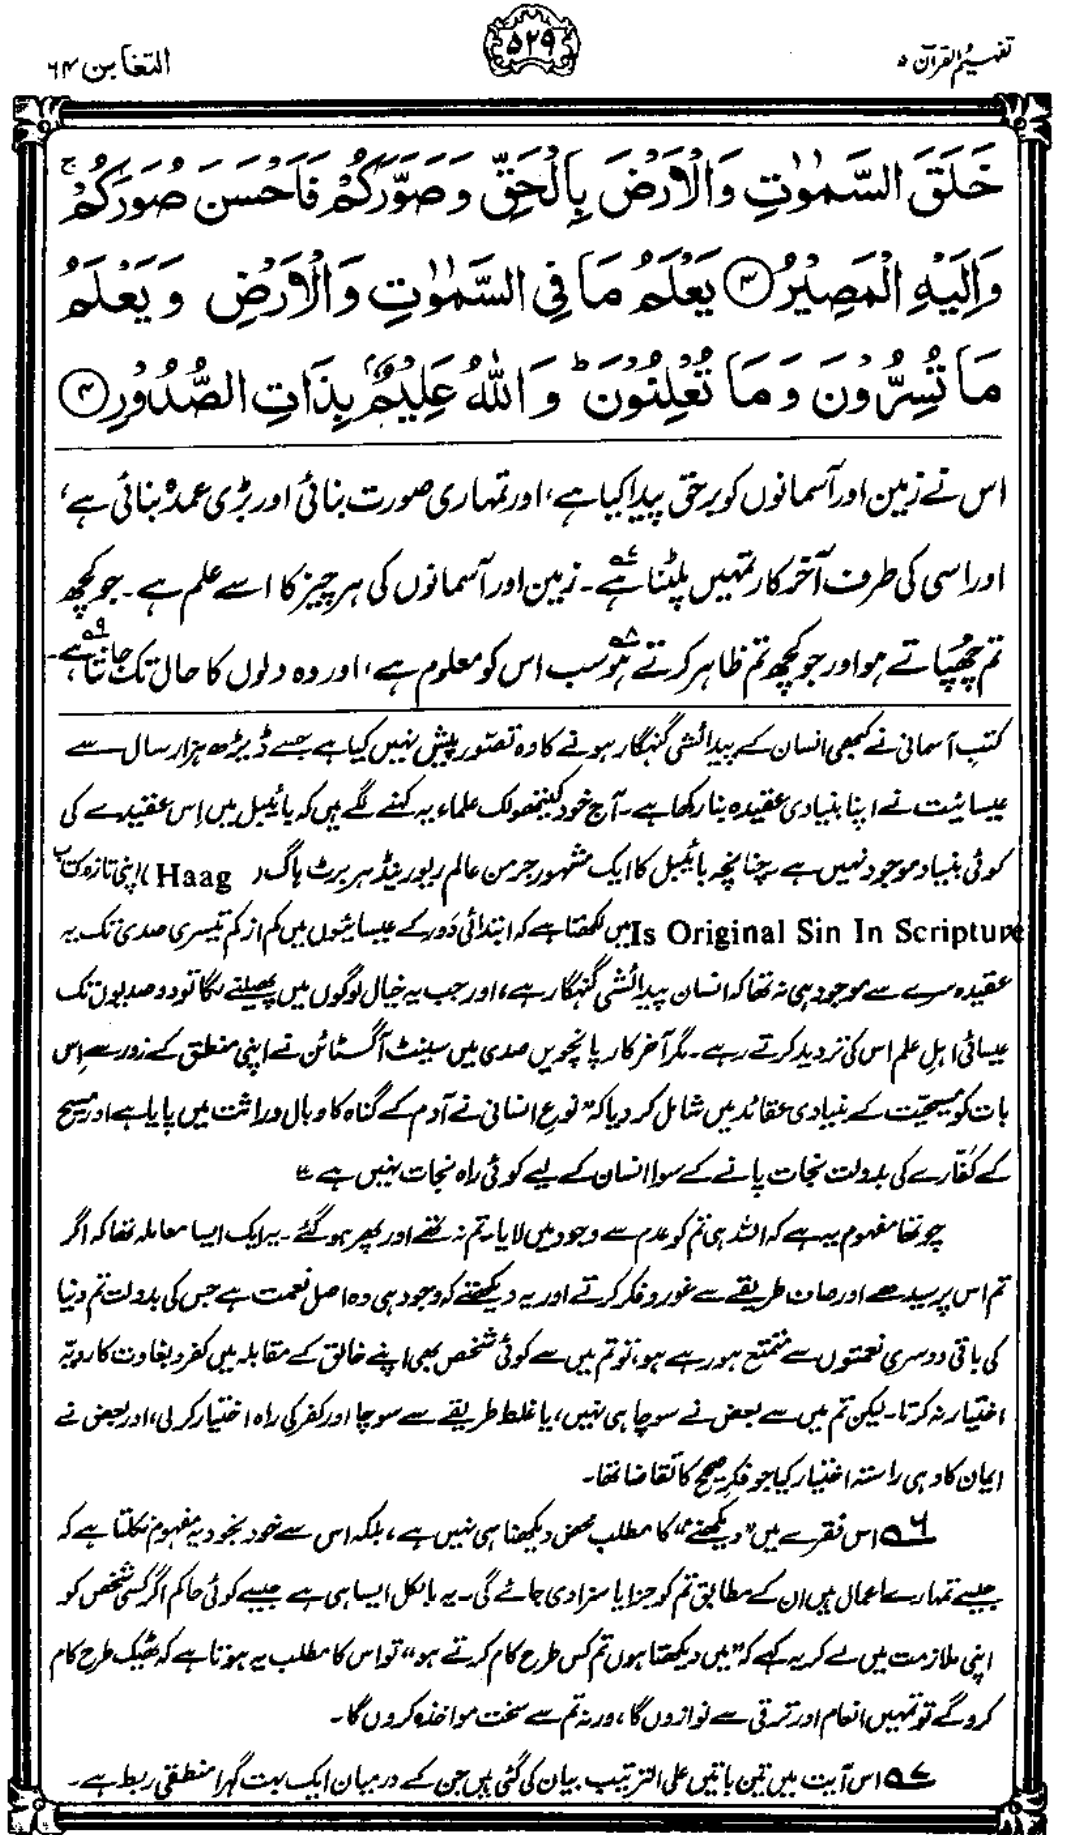 تفہیم القرآن ۵
۵۲۹
التغابن ۶۴
خَلَقَ السَّمٰوٰتِ وَالْاَرْضَ بِالْحَقِّ وَصَوَّرَكُمْ فَاَحْسَنَ صُوَرَكُمْ ۚ
وَاِلَيْهِ الْمَصِيْرُ ۝۳ يَعْلَمُ مَا فِي السَّمٰوٰتِ وَالْاَرْضِ وَيَعْلَمُ
مَا تُسِرُّوْنَ وَمَا تُعْلِنُوْنَ ؕ وَاللّٰهُ عَلِيْمٌۢ بِذَاتِ الصُّدُوْرِ ۝۴
اس نے زمین اور آسمانوں کو برحق پیدا کیا ہے، اور تمہاری صورت بنائی اور بڑی عمدہ بنائی ہے،
اور اسی کی طرف آخرکار تمہیں پلٹنا ہے۔ زمین اور آسمانوں کی ہر چیز کا اسے علم ہے۔ جو کچھ
تم چھپاتے ہو اور جو کچھ تم ظاہر کرتے ہو ۵۸ سب اس کو معلوم ہے، اور وہ دلوں کا حال تک جانتا ہے ۵۹۔
کتبِ آسمانی نے کبھی انسان کے پیدائشی گنہگار ہونے کا وہ تصور پیش نہیں کیا ہے جسے ڈیڑھ ہزار سال سے
عیسائیت نے اپنا بنیادی عقیدہ بنا رکھا ہے۔ آج خود کیتھولک علماء یہ کہنے لگے ہیں کہ بائیبل میں اِس عقیدے کی
کوئی بنیاد موجود نہیں ہے۔ چنانچہ بائیبل کا ایک مشہور جرمن عالم ریورینڈ ہربرٹ ہاگ (Haag) اپنی تازہ کتاب
Is Original Sin In Scripture میں لکھتا ہے کہ ابتدائی دَور کے عیسائیوں میں کم از کم تیسری صدی تک یہ
عقیدہ سرے سے موجود ہی نہ تھا کہ انسان پیدائشی گنہگار ہے، اور جب یہ خیال لوگوں میں پھیلنے لگا تو دو صدیوں تک
عیسائی اہلِ علم اس کی تردید کرتے رہے۔ مگر آخر کار پانچویں صدی میں سینٹ آگسٹائن نے اپنی منطق کے زور سے اِس
بات کو مسیحیّت کے بنیادی عقائد میں شامل کر دیا کہ "نوعِ انسانی نے آدم کے گناہ کا وبال وراثت میں پایا ہے اور مسیح
کے کفّارے کی بدولت نجات پانے کے سوا انسان کے لیے کوئی راہ نجات نہیں ہے"
چوتھا مفہوم یہ ہے کہ اللہ ہی تم کو عدم سے وجود میں لایا۔ تم نہ تھے اور پھر ہو گئے۔ یہ ایک ایسا معاملہ تھا کہ اگر
تم اس پر سیدھے اور صاف طریقے سے غور و فکر کرتے اور یہ دیکھتے کہ وجود ہی وہ اصل نعمت ہے جس کی بدولت تم دنیا
کی باقی دوسری نعمتوں سے متمتع ہو رہے ہو، تو تم میں سے کوئی شخص بھی اپنے خالق کے مقابلہ میں کفر و بغاوت کا رویّہ
اختیار نہ کرتا۔ لیکن تم میں سے بعض نے سوچا ہی نہیں، یا غلط طریقے سے سوچا اور کفر کی راہ اختیار کر لی، اور بعض نے
ایمان کا وہی راستہ اختیار کیا جو فکرِ صحیح کا تقاضا تھا۔
۵۶ اس فقرے میں "دیکھنے" کا مطلب محض دیکھنا ہی نہیں ہے، بلکہ اس سے خود بخود یہ مفہوم نکلتا ہے کہ
جیسے تمہارے اعمال ہیں ان کے مطابق تم کو جزا یا سزا دی جائے گی۔ یہ بالکل ایسا ہی ہے جیسے کوئی حاکم اگر کسی شخص کو
اپنی ملازمت میں لے کر یہ کہے کہ "میں دیکھتا ہوں تم کس طرح کام کرتے ہو"، تو اس کا مطلب یہ ہوتا ہے کہ ٹھیک طرح کام
کرو گے تو تمہیں انعام اور ترقی سے نوازوں گا، ورنہ تم سے سخت مواخذہ کروں گا۔
۵۷ اس آیت میں تین باتیں علی الترتیب بیان کی گئی ہیں جن کے درمیان ایک بہت گہرا منطقی ربط ہے۔